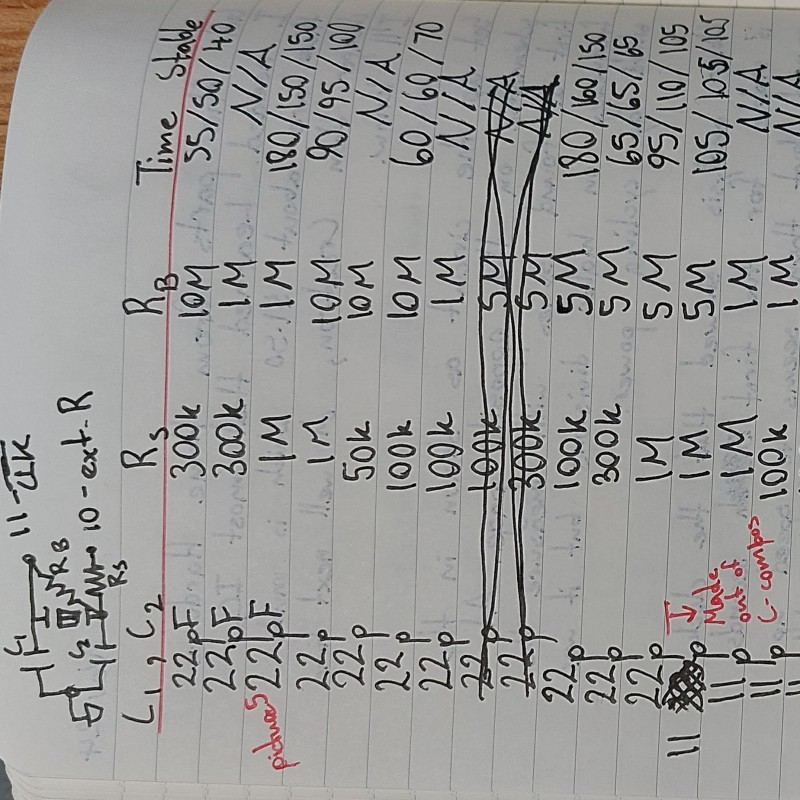 C₁ 11 - C̅L̅K̅
C₂ R_B 10 - ext. R
R_S
C₁, C₂ R_S R_B Time Stable
22pF 300k 10M 55/50/40
22pF 300k 1M N/A
pictures 22pF 1M 1M 180/150/150
22p 1M 10M 90/95/100
22p 50k 10M N/A
22p 100k 10M 60/60/70
22p 100k 1M N/A
22p 100k 5M N/A
22p 300k 5M N/A
22p 100k 5M 180/160/150
22p 300k 5M 65/65/65
22p 1M 5M 95/110/105
11 p 1M 5M 105/105/105
11p Made out of C-compos 1M 1M N/A
11p 100k 1M N/A
11